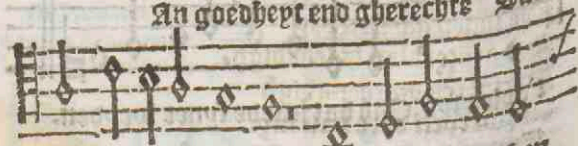 An goedheyt end gherechts